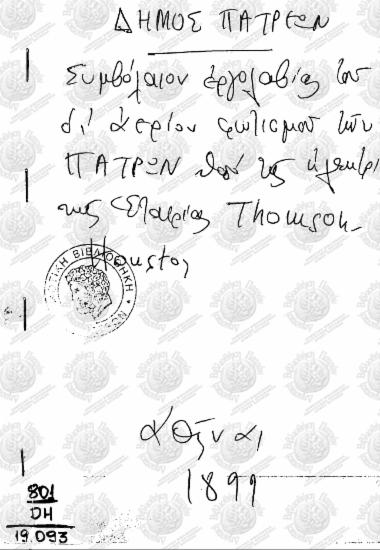 ΔΗΜΟΣ ΠΑΤΡΕΩΝ
Συμβόλαιον ἐργολαβίας του
δι' ἀερίου φωτισμού τῶν
ΠΑΤΡΩΝ ὑπό τῆς ἠλεκτρι
κης Εταιρίας Thomson-
Houston
ΒΙΒΛΙΟΘΗΚΗ
Ἀθῆναι
1899
801
DH
19.093